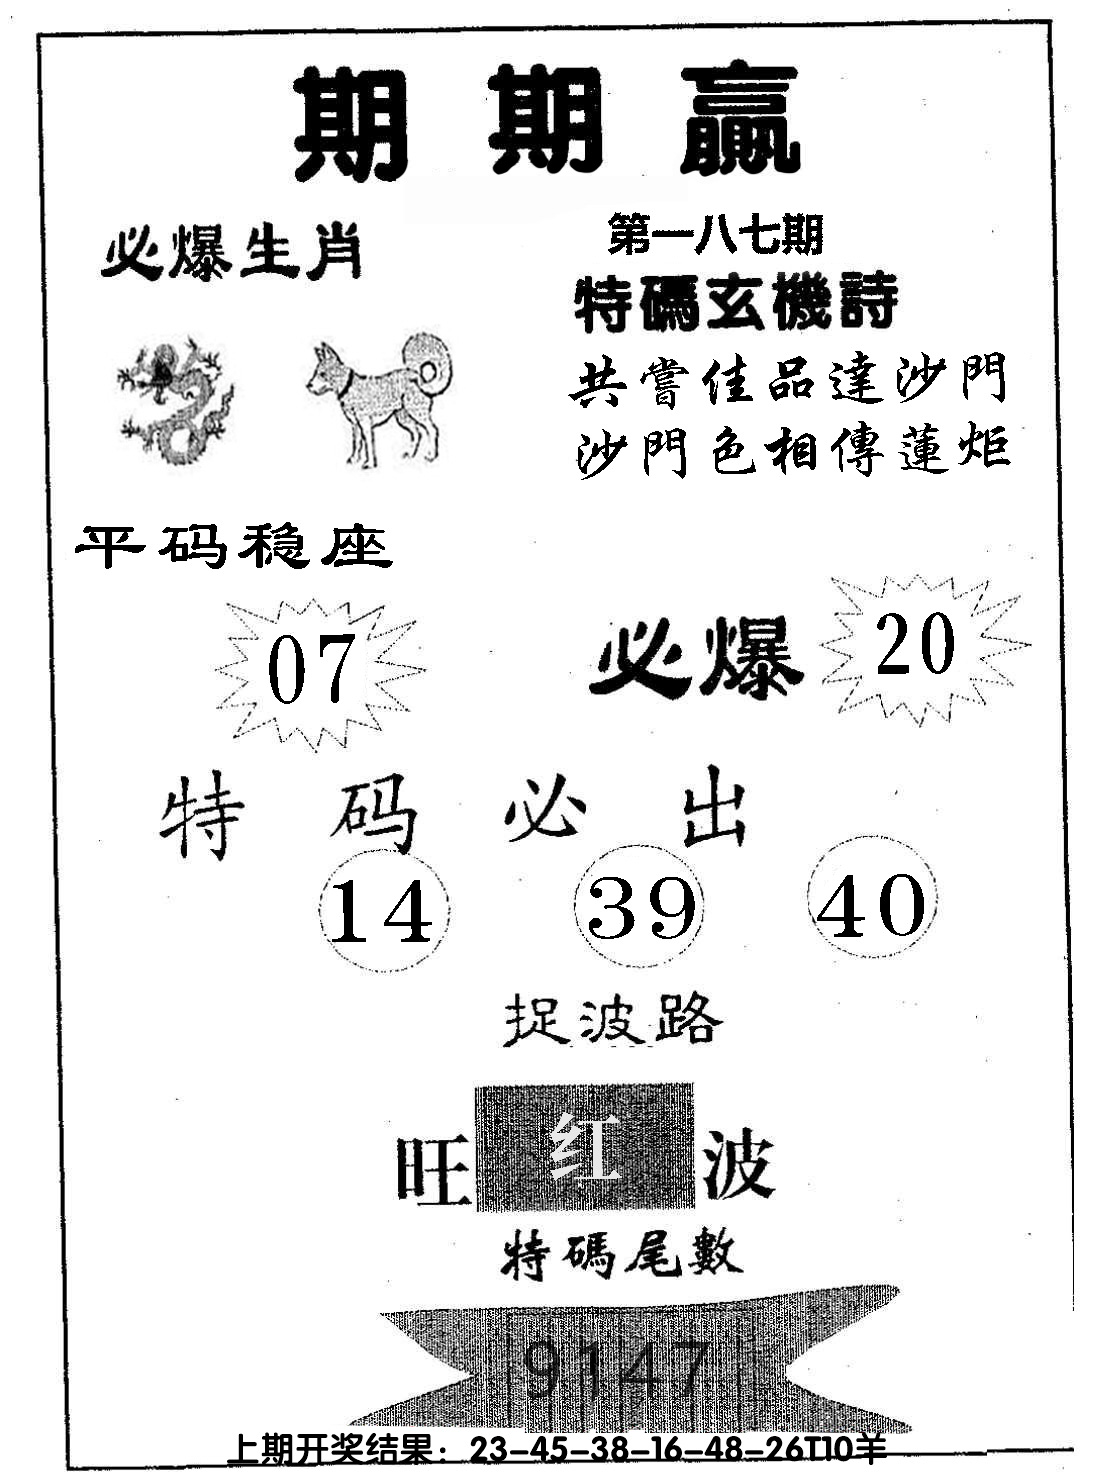 期期贏
第一八七期
必爆生肖
特碼玄機詩
共嘗佳品達沙門
沙門色相傳蓮炬
平码稳座
07
必爆 20
特码必出
14 39 40
捉波路
旺红波
特碼尾數
9147
上期开奖结果：23-45-38-16-48-26T10羊